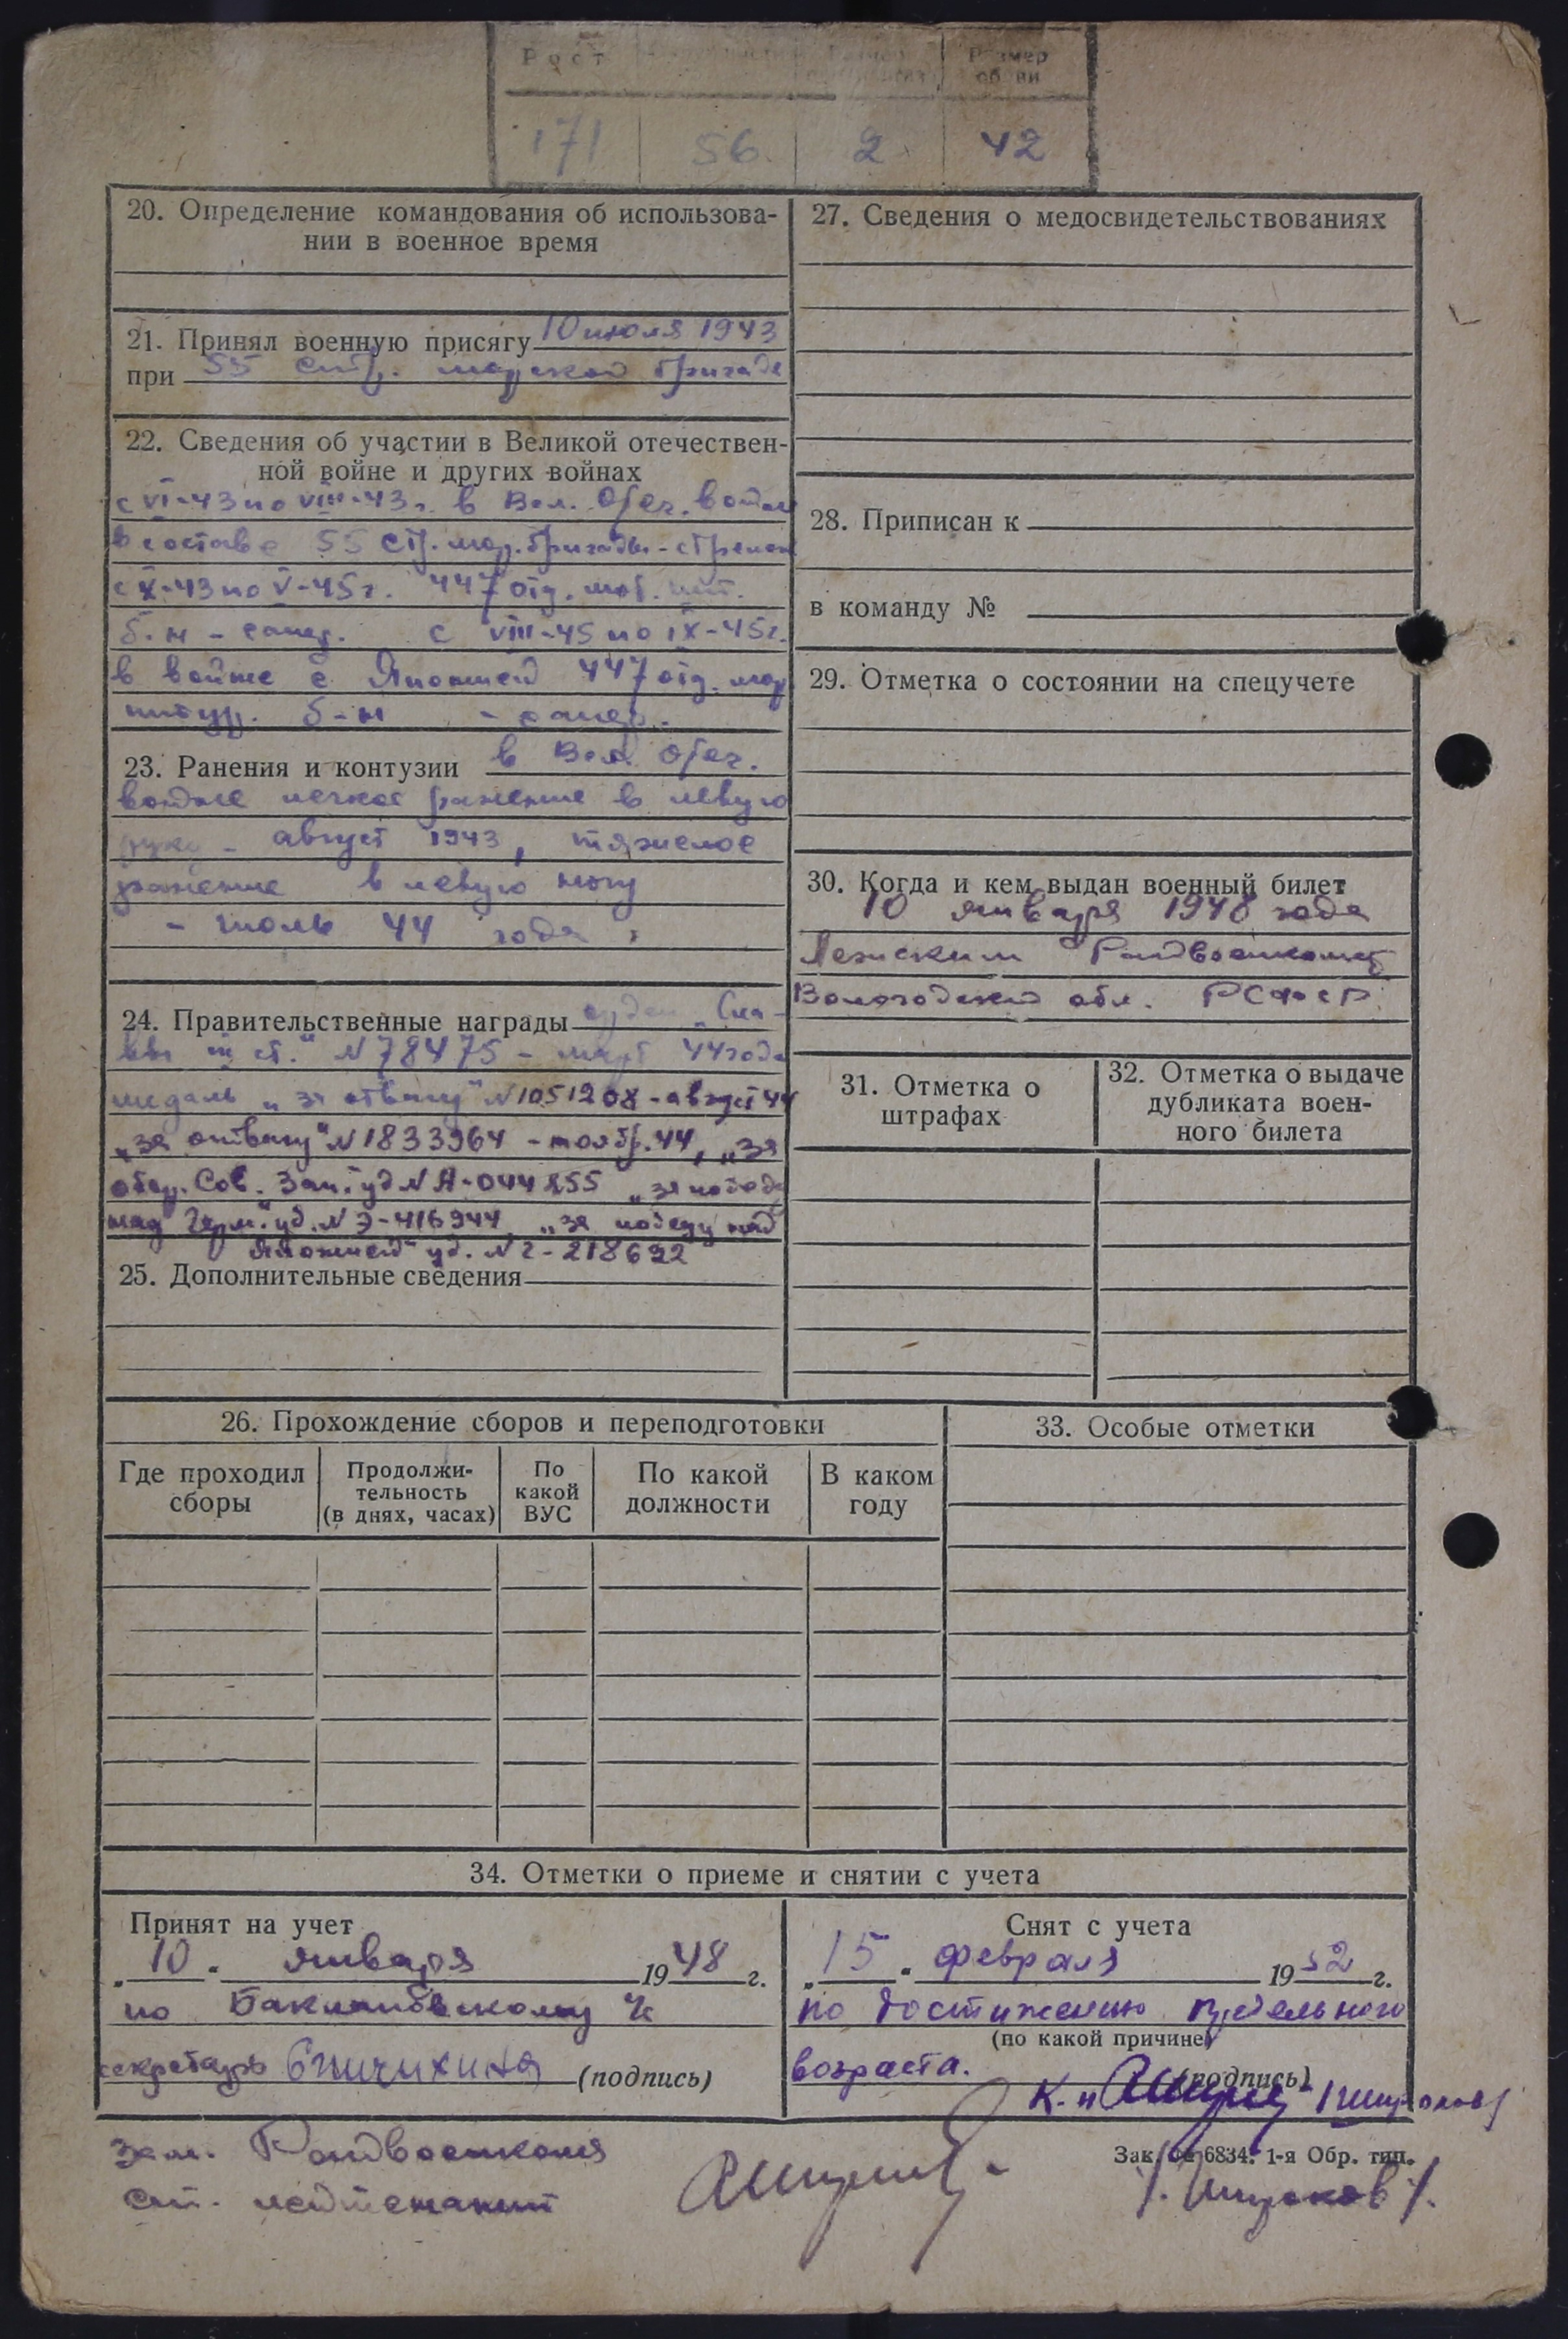 Рост Размер
обуви
171 56 2 42
20. Определение командования об использова-
нии в военное время
21. Принял военную присягу 10 июля 1943
при 55 стр. морской бригаде
22. Сведения об участии в Великой отечествен-
ной войне и других войнах
с VI-43 по VIII-43 г. в Вел. Отеч. войне
в составе 55 стр. мор. бригады - стрелок
с X-43 по V-45 г. 447 отд.
б-н - сапер. с VIII-45 по IX-45 г.
в войне с Японией 447 отд.
б-н - сапер.
23. Ранения и контузии в Вел. Отеч.
войне легкое ранение в левую
руку - август 1943, тяжелое
ранение в левую ногу
- июль 44 года.
24. Правительственные награды орден „Сла-
вы III ст." N 78475 - март 44 года
медаль „за отвагу" N 1051208 - август 44
„за отвагу" N 1833964 - ноябр. 44, „за
обор. Сов. Зап." уд N А-044255 „за победу
над Герм." уд. N Э-416944, „за победу над
Японией" уд. N Г-218692
25. Дополнительные сведения
26. Прохождение сборов и переподготовки
Где проходил
сборы
Продолжи-
тельность
(в днях, часах)
По
какой
ВУС
По какой
должности
В каком
году
27. Сведения о медосвидетельствованиях
28. Приписан к
в команду №
29. Отметка о состоянии на спецучете
30. Когда и кем выдан военный билет
10 января 1948 года
Лежским Райвоенкомат
Вологодской обл. РСФСР
31. Отметка о
штрафах
32. Отметка о выдаче
дубликата воен-
ного билета
33. Особые отметки
34. Отметки о приеме и снятии с учета
Принят на учет
„10" января 1948 г.
по Баклановскому
секретарь Спичихина (подпись)
Снят с учета
„15" февраля 1952 г.
по достижению предельного
(по какой причине)
возраста.
(подпись)
К-н /Широков/
зам. Райвоенкома
ст. лейтенант
Зак. № 6834. 1-я Обр. тип.
/Широков/.